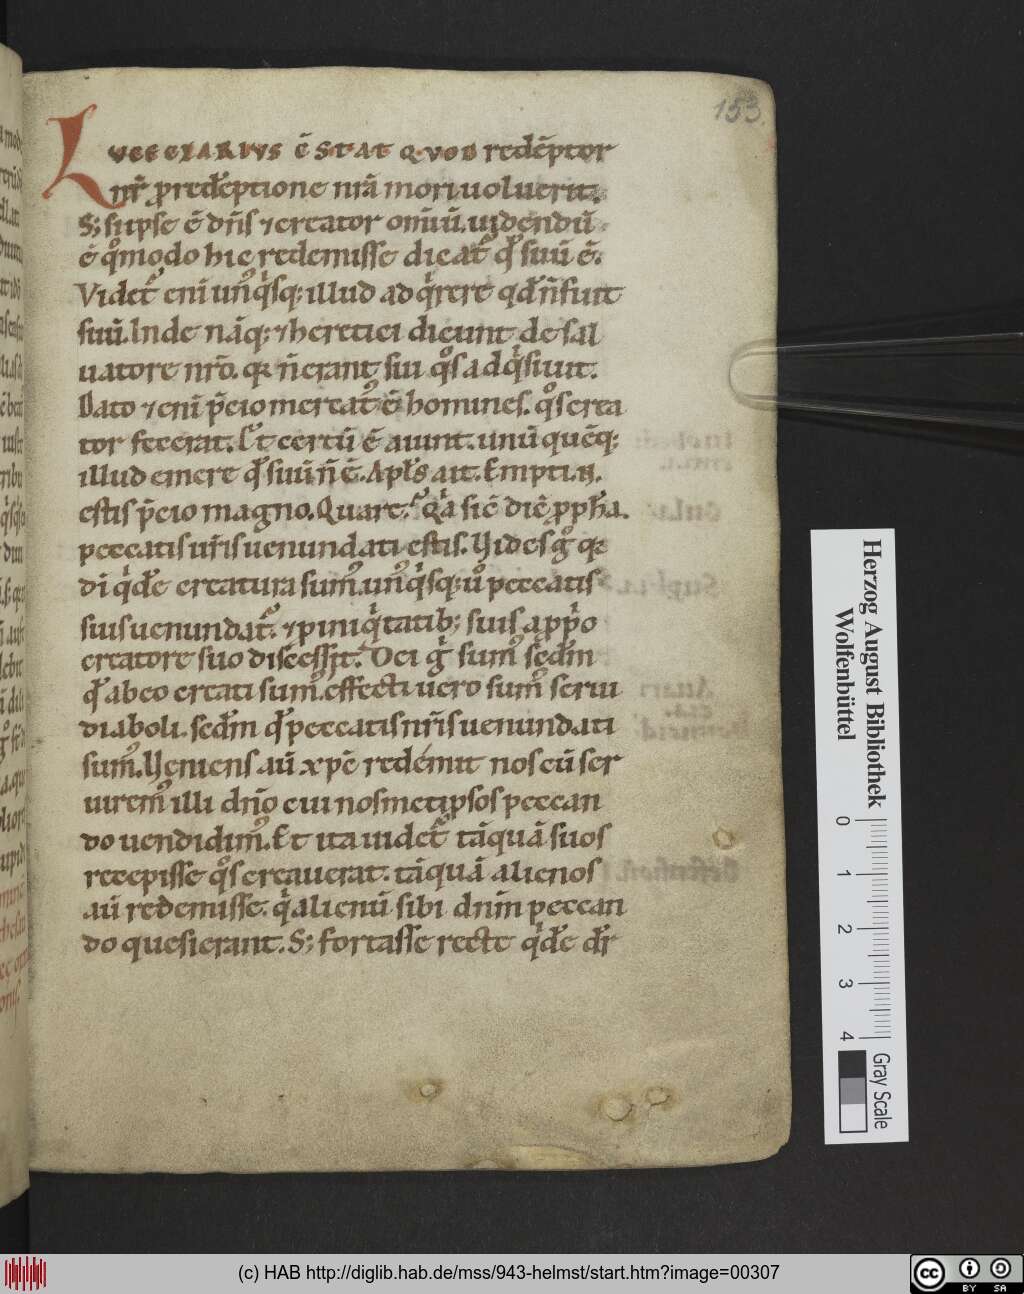 153.
LUCE CLARIUS ē STAT QVOD redēptor
nr̄ p redēptione nrā mori uoluerit.
S; si ipse ē dn̄s ⁊ creator om̄iū. uidendū
ē qͦmodo hic redemisse dicat᷑ qđ suū ē.
Videt᷑ eni unͦqͥsq; illud adqͥrere qđ n̄ fuit
suū. Inde nāq; ⁊ heretici dicunt de sal
uatore nrō. qꝛ n̄ erant sui qͦs adqͥsiuit.
Dato ⁊eni p̄cio mercatͦ ē homines. qͦs crea
tor fecerat. Et certū ē aiunt. unū quēq;
illud emere qđ suū n̄ ē. Apl's ait. Empti. n.
estis p̄cio magno. Quare? Qͥa sic̄ dic̄ ꝓph̄a.
peccatis ur̄is uenundati estis. Vides gͦ qꝛ
di qͥdē creatura sumͦ. unͦqͥsq; uͦ peccatis
suis uenundatͦ. ⁊ p iniqͥtatib; suis a pp̄o
creatore suo discessit. Dei gͥ sumͦ sc̄dm
qđ ab eo creati sumͦ. effecti uero sumͦ serui
diaboli. sc̄dm qđ peccatis nr̄is uenundati
sumͦ. Veniens aū xpc̄ redémit nos cū ser
uiremͦ illi dn̄o cui nosmetipsos peccan
do uendidimͦ. Et ita uidet᷑ tāquā suos
recepisse qͦs creauerat. tāquā alienos
aū redemisse. qͥ alienū sibi dn̄m peccan
do quesierant. S; fortasse recte qͥdē dr̄
Herzog August Bibliothek
Wolfenbüttel
0
1
2
3
4
Gray Scale
(c) HAB http://diglib.hab.de/mss/943-helmst/start.htm?image=00307
cc
BY SA